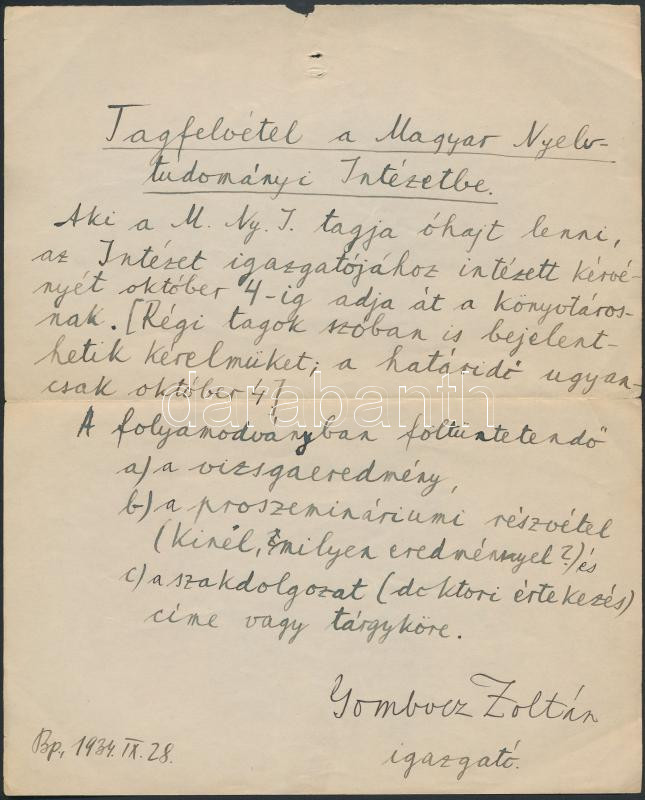 Tagfelvétel a Magyar Nyelv-
tudományi Intézetbe.
Aki a M. Ny. I. tagja óhajt lenni,
az Intézet igazgatójához intézett kérvé-
nyét október 4-ig adja át a könyvtáros-
nak. [Régi tagok szóban is bejelent-
hetik kérelmüket; a határidő ugyan-
csak október 4]
darabanth
A folyamodványban föltüntetendő
a) a vizsgaeredmény,
b) a proszemináriumi részvétel
(Kinél, milyen eredménnyel?) és
c) a szakdolgozat (doktori értekezés)
címe vagy tárgyköre.
Gombocz Zoltán
igazgató.
Bp., 1934. IX. 28.